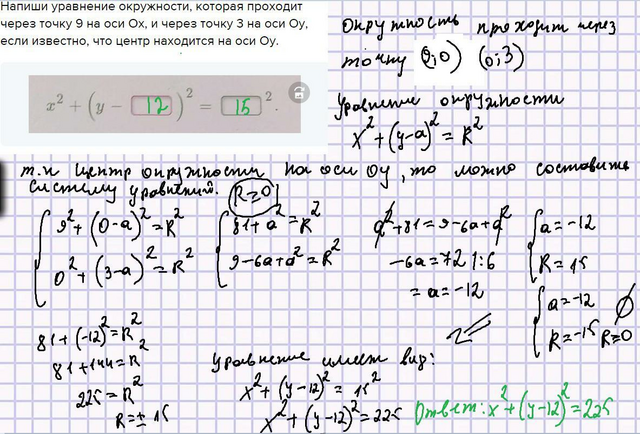 Напиши уравнение окружности, которая проходит
через точку 9 на оси Ox, и через точку 3 на оси Oy,
если известно, что центр находится на оси Oy.
x² + (y − 12)² = 15².
Окружность проходит через
точку (9;0) (0;3)
Уравнение окружности
x² + (y-a)² = R²
т.к центр окружности на оси Oy, то можно составить
систему уравнений. R≥0
9² + (0-a)² = R²
0² + (3-a)² = R²
81 + a² = R²
9-6a+a² = R²
a² + 81 = 9-6a+a²
-6a = 72 | :6
= a = -12
a = -12
R = 15
a = -12
R = -15 R≥0 ∅
81 + (-12)² = R²
81 + 144 = R²
225 = R²
R = ± 15
Уравнение имеет вид:
x² + (y-12)² = 15²
x² + (y-12)² = 225
Ответ: x² + (y-12)² = 225